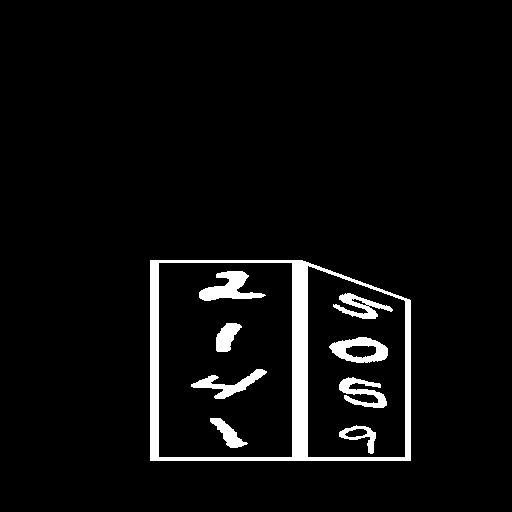 2
1
4
1
5
0
5
9